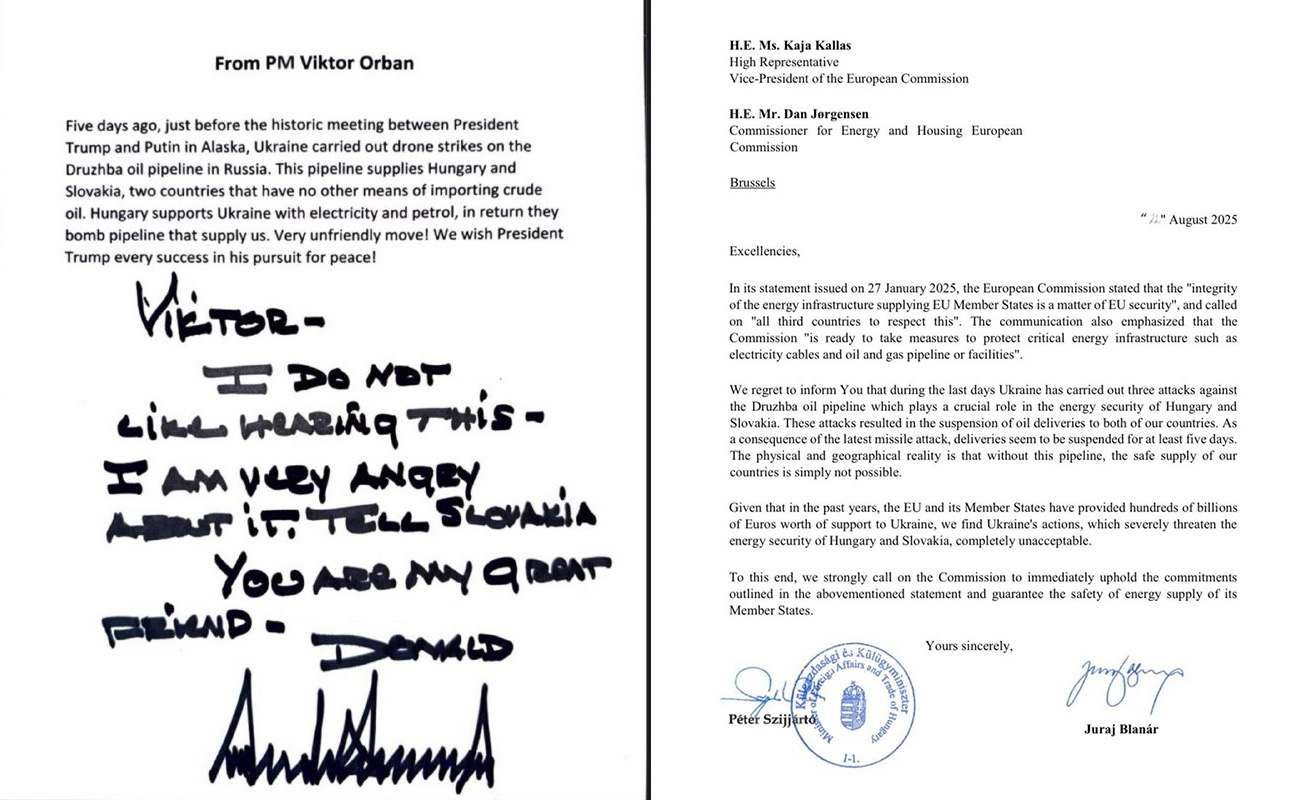 From PM Viktor Orban
Five days ago, just before the historic meeting between President
Trump and Putin in Alaska, Ukraine carried out drone strikes on the
Druzhba oil pipeline in Russia. This pipeline supplies Hungary and
Slovakia, two countries that have no other means of importing crude
oil. Hungary supports Ukraine with electricity and petrol, in return they
bomb pipeline that supply us. Very unfriendly move! We wish President
Trump every success in his pursuit for peace!
VIKTOR-
I DO NOT
LIKE HEARING THIS -
I AM VERY ANGRY
ABOUT IT. TELL SLOVAKIA
YOU ARE MY GREAT
FRIEND -
DONALD
H.E. Ms. Kaja Kallas
High Representative
Vice-President of the European Commission
H.E. Mr. Dan Jørgensen
Commissioner for Energy and Housing European
Commission
Brussels
" " August 2025
Excellencies,
In its statement issued on 27 January 2025, the European Commission stated that the "integrity
of the energy infrastructure supplying EU Member States is a matter of EU security", and called
on "all third countries to respect this". The communication also emphasized that the
Commission "is ready to take measures to protect critical energy infrastructure such as
electricity cables and oil and gas pipeline or facilities".
We regret to inform You that during the last days Ukraine has carried out three attacks against
the Druzhba oil pipeline which plays a crucial role in the energy security of Hungary and
Slovakia. These attacks resulted in the suspension of oil deliveries to both of our countries. As
a consequence of the latest missile attack, deliveries seem to be suspended for at least five days.
The physical and geographical reality is that without this pipeline, the safe supply of our
countries is simply not possible.
Given that in the past years, the EU and its Member States have provided hundreds of billions
of Euros worth of support to Ukraine, we find Ukraine's actions, which severely threaten the
energy security of Hungary and Slovakia, completely unacceptable.
To this end, we strongly call on the Commission to immediately uphold the commitments
outlined in the abovementioned statement and guarantee the safety of energy supply of its
Member States.
Yours sincerely,
Péter Szijjártó
Külgazdasági és Külügyminiszter
Minister of Foreign Affairs and Trade of Hungary
I-1.
Juraj Blanár